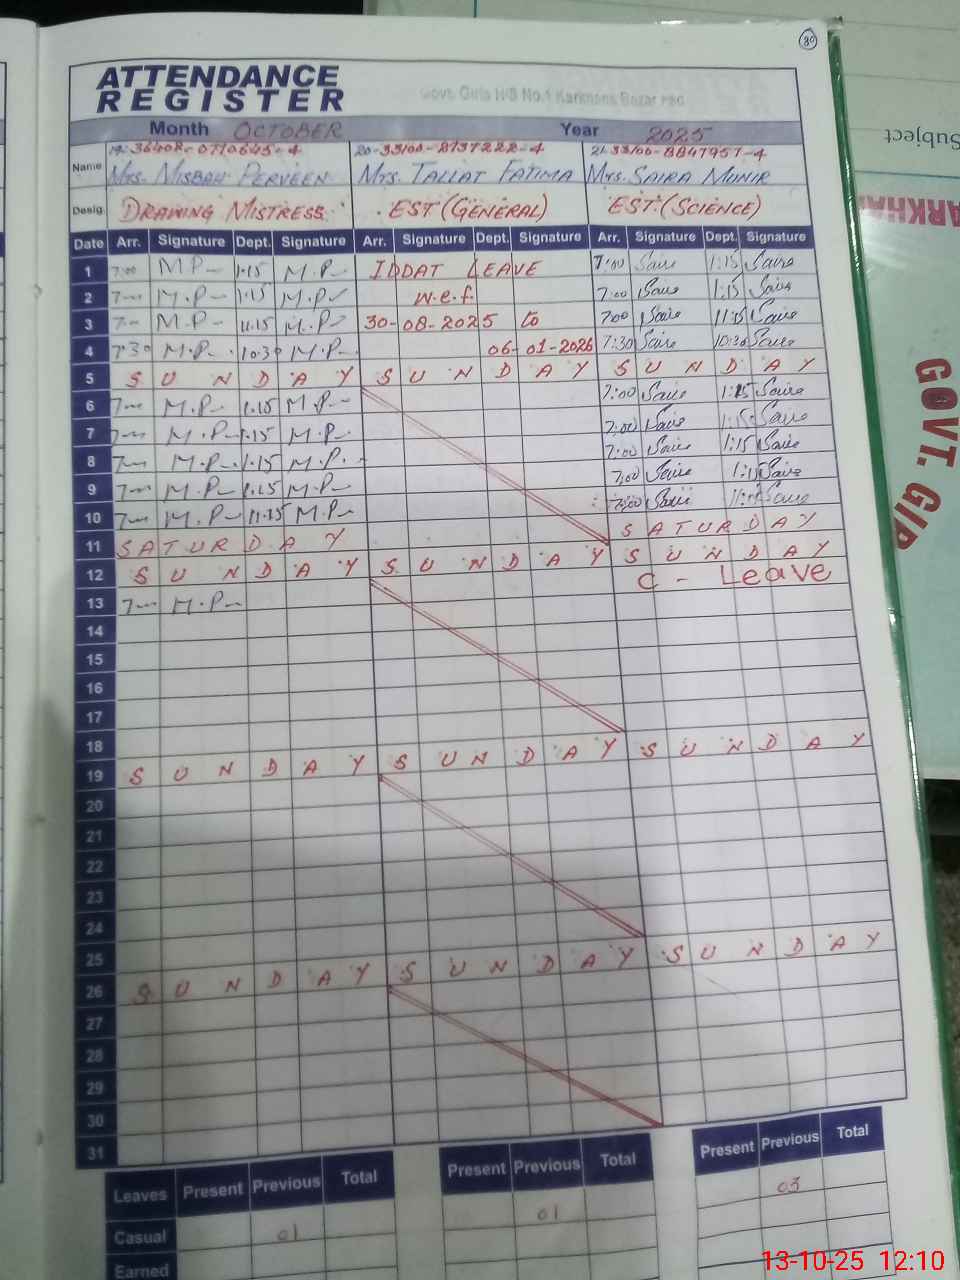 80
ATTENDANCE
REGISTER
Govt. Girls H/S No.1 Karkhana Bazar FSD
Month OCTOBER Year 2025
Name 19- 36402-0710645-4 20-33100-8737222-4 21-33100-8847957-4
Mrs. MISBAH PERVEEN Mrs. TALLAT FATIMA Mrs. SAIRA MUNIR
Desig. DRAWING MISTRESS EST (GENERAL) EST. (SCIENCE)
Date Arr. Signature Dept. Signature Arr. Signature Dept. Signature Arr. Signature Dept. Signature
1 7:00 M.P 1.15 M.P IDDAT LEAVE 7:00 Saira 1:15 Saira
2 M.P 1.15 M.P w.e.f. 7:00 Saira 1:15 Saira
3 M.P 11.15 M.P 30-08-2025 to 7:00 Saira 11:15 Saira
4 7:30 M.P 10:30 M.P. 06-01-2026 7:30 Saira 10:30 Saira
5 SUNDAY SUNDAY SUNDAY
6 M.P 1.15 M.P 7:00 Saira 1:15 Saira
7 M.P 1.15 M.P 7:00 Saira 1:15 Saira
8 M.P 1.15 M.P. 7:00 Saira 1:15 Saira
9 M.P 1.15 M.P 7:00 Saira 1:15 Saira
10 M.P 11.15 M.P 7:00 Saira Saira
11 SATURDAY SATURDAY
12 SUNDAY SUNDAY SUNDAY
13 M.P C - Leave
14
15
16
17
18
19 SUNDAY SUNDAY SUNDAY
20
21
22
23
24
25
26 SUNDAY SUNDAY SUNDAY
27
28
29
30
31
Leaves Present Previous Total Present Previous Total Present Previous Total
Casual 01 01 03
Earned
Subject
GOVT. GIR
13-10-25 12:10